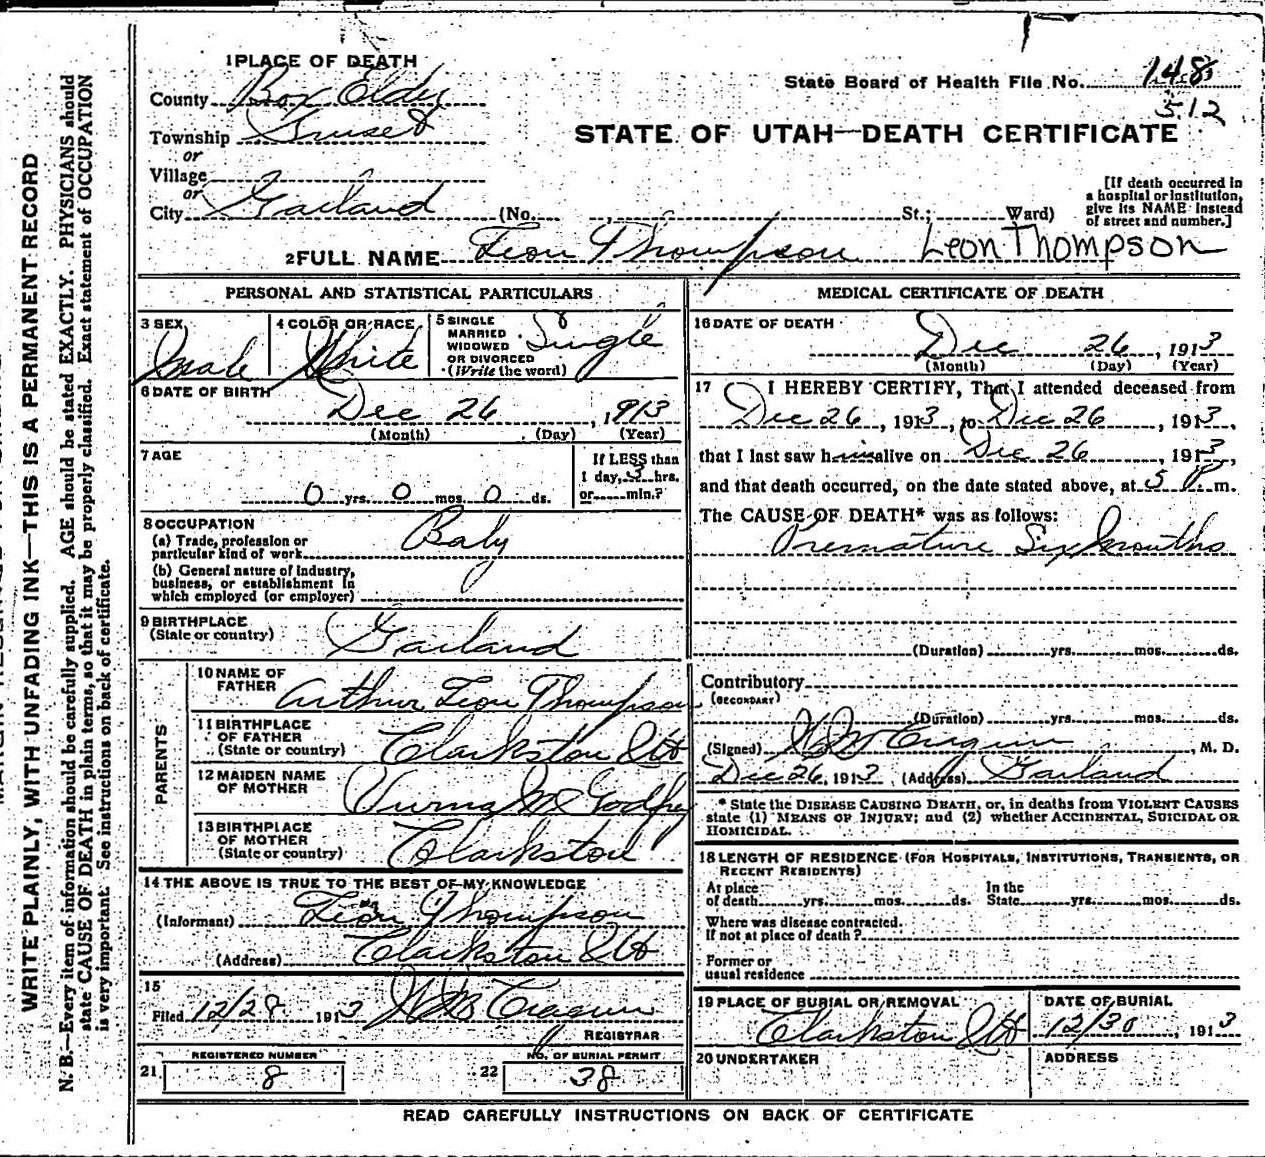 1 PLACE OF DEATH
County Box Elder
Township
or
Village
or
City Garland (No. , St.; Ward)
State Board of Health File No. 148
512
STATE OF UTAH—DEATH CERTIFICATE
[If death occurred in
a hospital or institution,
give its NAME instead
of street and number.]
2 FULL NAME Leon Thompson Leon Thompson
PERSONAL AND STATISTICAL PARTICULARS
3 SEX
Male
4 COLOR OR RACE
White
5 SINGLE
MARRIED
WIDOWED
OR DIVORCED
(Write the word)
Single
6 DATE OF BIRTH
Dec 26 , 1913
(Month) (Day) (Year)
7 AGE
0 yrs. 0 mos. 0 ds.
If LESS than
1 day, 3 hrs.
or min.?
8 OCCUPATION
(a) Trade, profession or
particular kind of work Baby
(b) General nature of industry,
business, or establishment in
which employed (or employer)
9 BIRTHPLACE
(State or country) Garland
PARENTS
10 NAME OF
FATHER Arthur Leon Thompson
11 BIRTHPLACE
OF FATHER
(State or country) Clarkston Ut
12 MAIDEN NAME
OF MOTHER M Godfrey
13 BIRTHPLACE
OF MOTHER
(State or country) Clarkston
14 THE ABOVE IS TRUE TO THE BEST OF MY KNOWLEDGE
(Informant) Leon Thompson
(Address) Clarkston Ut
15
Filed 12/28 1913
REGISTRAR
REGISTERED NUMBER
21 8
NO. OF BURIAL PERMIT
22 38
MEDICAL CERTIFICATE OF DEATH
16 DATE OF DEATH
Dec 26 , 1913
(Month) (Day) (Year)
17 I HEREBY CERTIFY, That I attended deceased from
Dec 26 , 1913 , to Dec 26 , 1913 ,
that I last saw him alive on Dec 26 , 1913 ,
and that death occurred, on the date stated above, at 5 P. m.
The CAUSE OF DEATH* was as follows:
Premature Six months
(Duration) yrs. mos. ds.
Contributory
(SECONDARY)
(Duration) yrs. mos. ds.
(Signed) , M. D.
Dec 26, 1913 (Address) Garland
* State the DISEASE CAUSING DEATH, or, in deaths from VIOLENT CAUSES
state (1) MEANS OF INJURY; and (2) whether ACCIDENTAL, SUICIDAL OR
HOMICIDAL.
18 LENGTH OF RESIDENCE (FOR HOSPITALS, INSTITUTIONS, TRANSIENTS, OR
RECENT RESIDENTS)
At place
of death yrs. mos. ds.
In the
State yrs. mos. ds.
Where was disease contracted.
If not at place of death?
Former or
usual residence
19 PLACE OF BURIAL OR REMOVAL
Clarkston Ut
DATE OF BURIAL
12/30 , 1913
20 UNDERTAKER
ADDRESS
READ CAREFULLY INSTRUCTIONS ON BACK OF CERTIFICATE
WRITE PLAINLY, WITH UNFADING INK—THIS IS A PERMANENT RECORD
N. B.—Every item of information should be carefully supplied. AGE should be stated EXACTLY. PHYSICIANS should
state CAUSE OF DEATH in plain terms, so that it may be properly classified. Exact statement of OCCUPATION
is very important. See instructions on back of certificate.